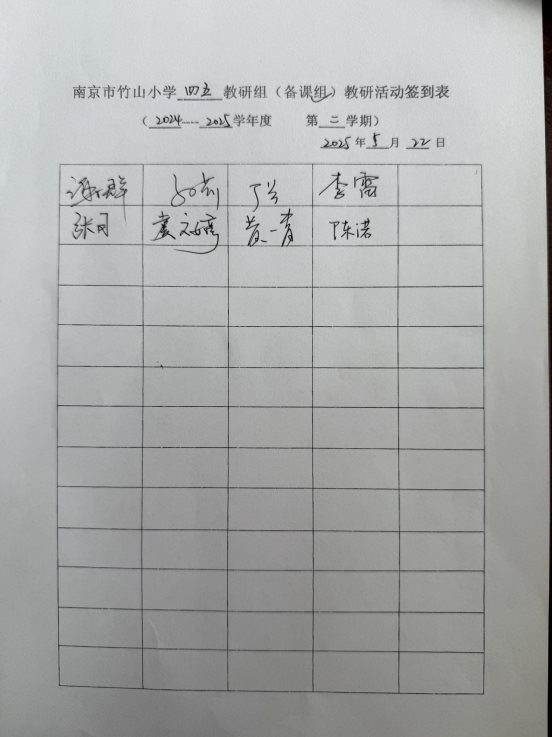 南京市竹山小学 四五 教研组（备课组）教研活动签到表
（ 2024----2025学年度 第 二 学期）
2025 年 5 月 22 日
李雷
张 黄一青 陈诺